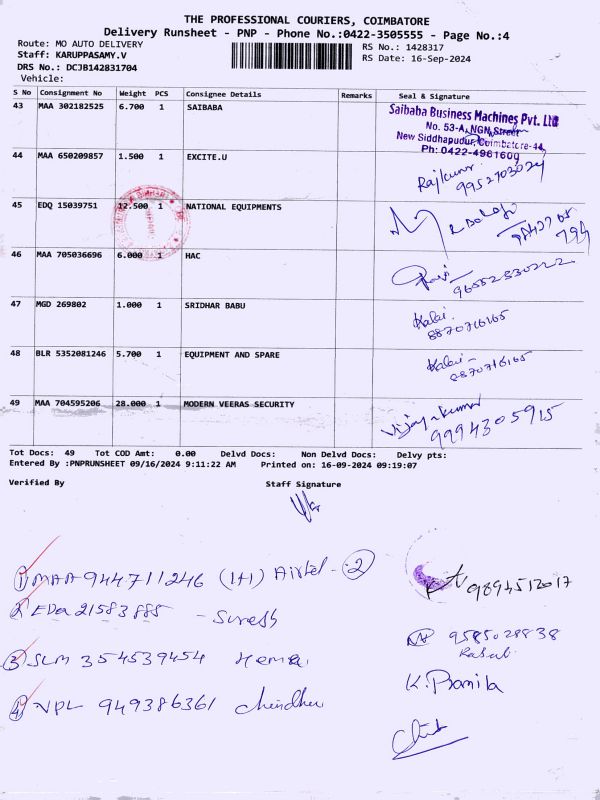 THE PROFESSIONAL COURIERS, COIMBATORE
Delivery Runsheet - PNP - Phone No.:0422-3505555 - Page No.:4
Route: MO AUTO DELIVERY RS No.: 1428317
Staff: KARUPPASAMY.V RS Date: 16-Sep-2024
DRS No.: DCJB142831704
Vehicle:
S No Consignment No Weight PCS Consignee Details Remarks Seal & Signature
43 MAA 302182525 6.700 1 SAIBABA
Saibaba Business Machines Pvt. Ltd
No. 53-A, NGN Street
New Siddhapudur, Coimbatore-44,
Ph: 0422-4961600
44 MAA 650209857 1.500 1 EXCITE.U
Rajkumar
9952703024
45 EDQ 15039751 12.500 1 NATIONAL EQUIPMENTS
46 MAA 705036696 6.000 1 HAC
47 MGD 269802 1.000 1 SRIDHAR BABU
Kalai.
8870716165
48 BLR 5352081246 5.700 1 EQUIPMENT AND SPARE
Kalai-
8870716165
49 MAA 704595206 28.000 1 MODERN VEERAS SECURITY
Vijayakumar
9994305915
Tot Docs: 49 Tot COD Amt: 0.00 Delvd Docs: Non Delvd Docs: Delvy pts:
Entered By :PNPRUNSHEET 09/16/2024 9:11:22 AM Printed on: 16-09-2024 09:19:07
Verified By Staff Signature
1 MAA 944711246 (1+1) Airtel - 2
9894512017
2 EDQ 21583885 - Suresh
9585028838
3 SLM 354539454 Hema
K. Pramila
4 NPL 949386361